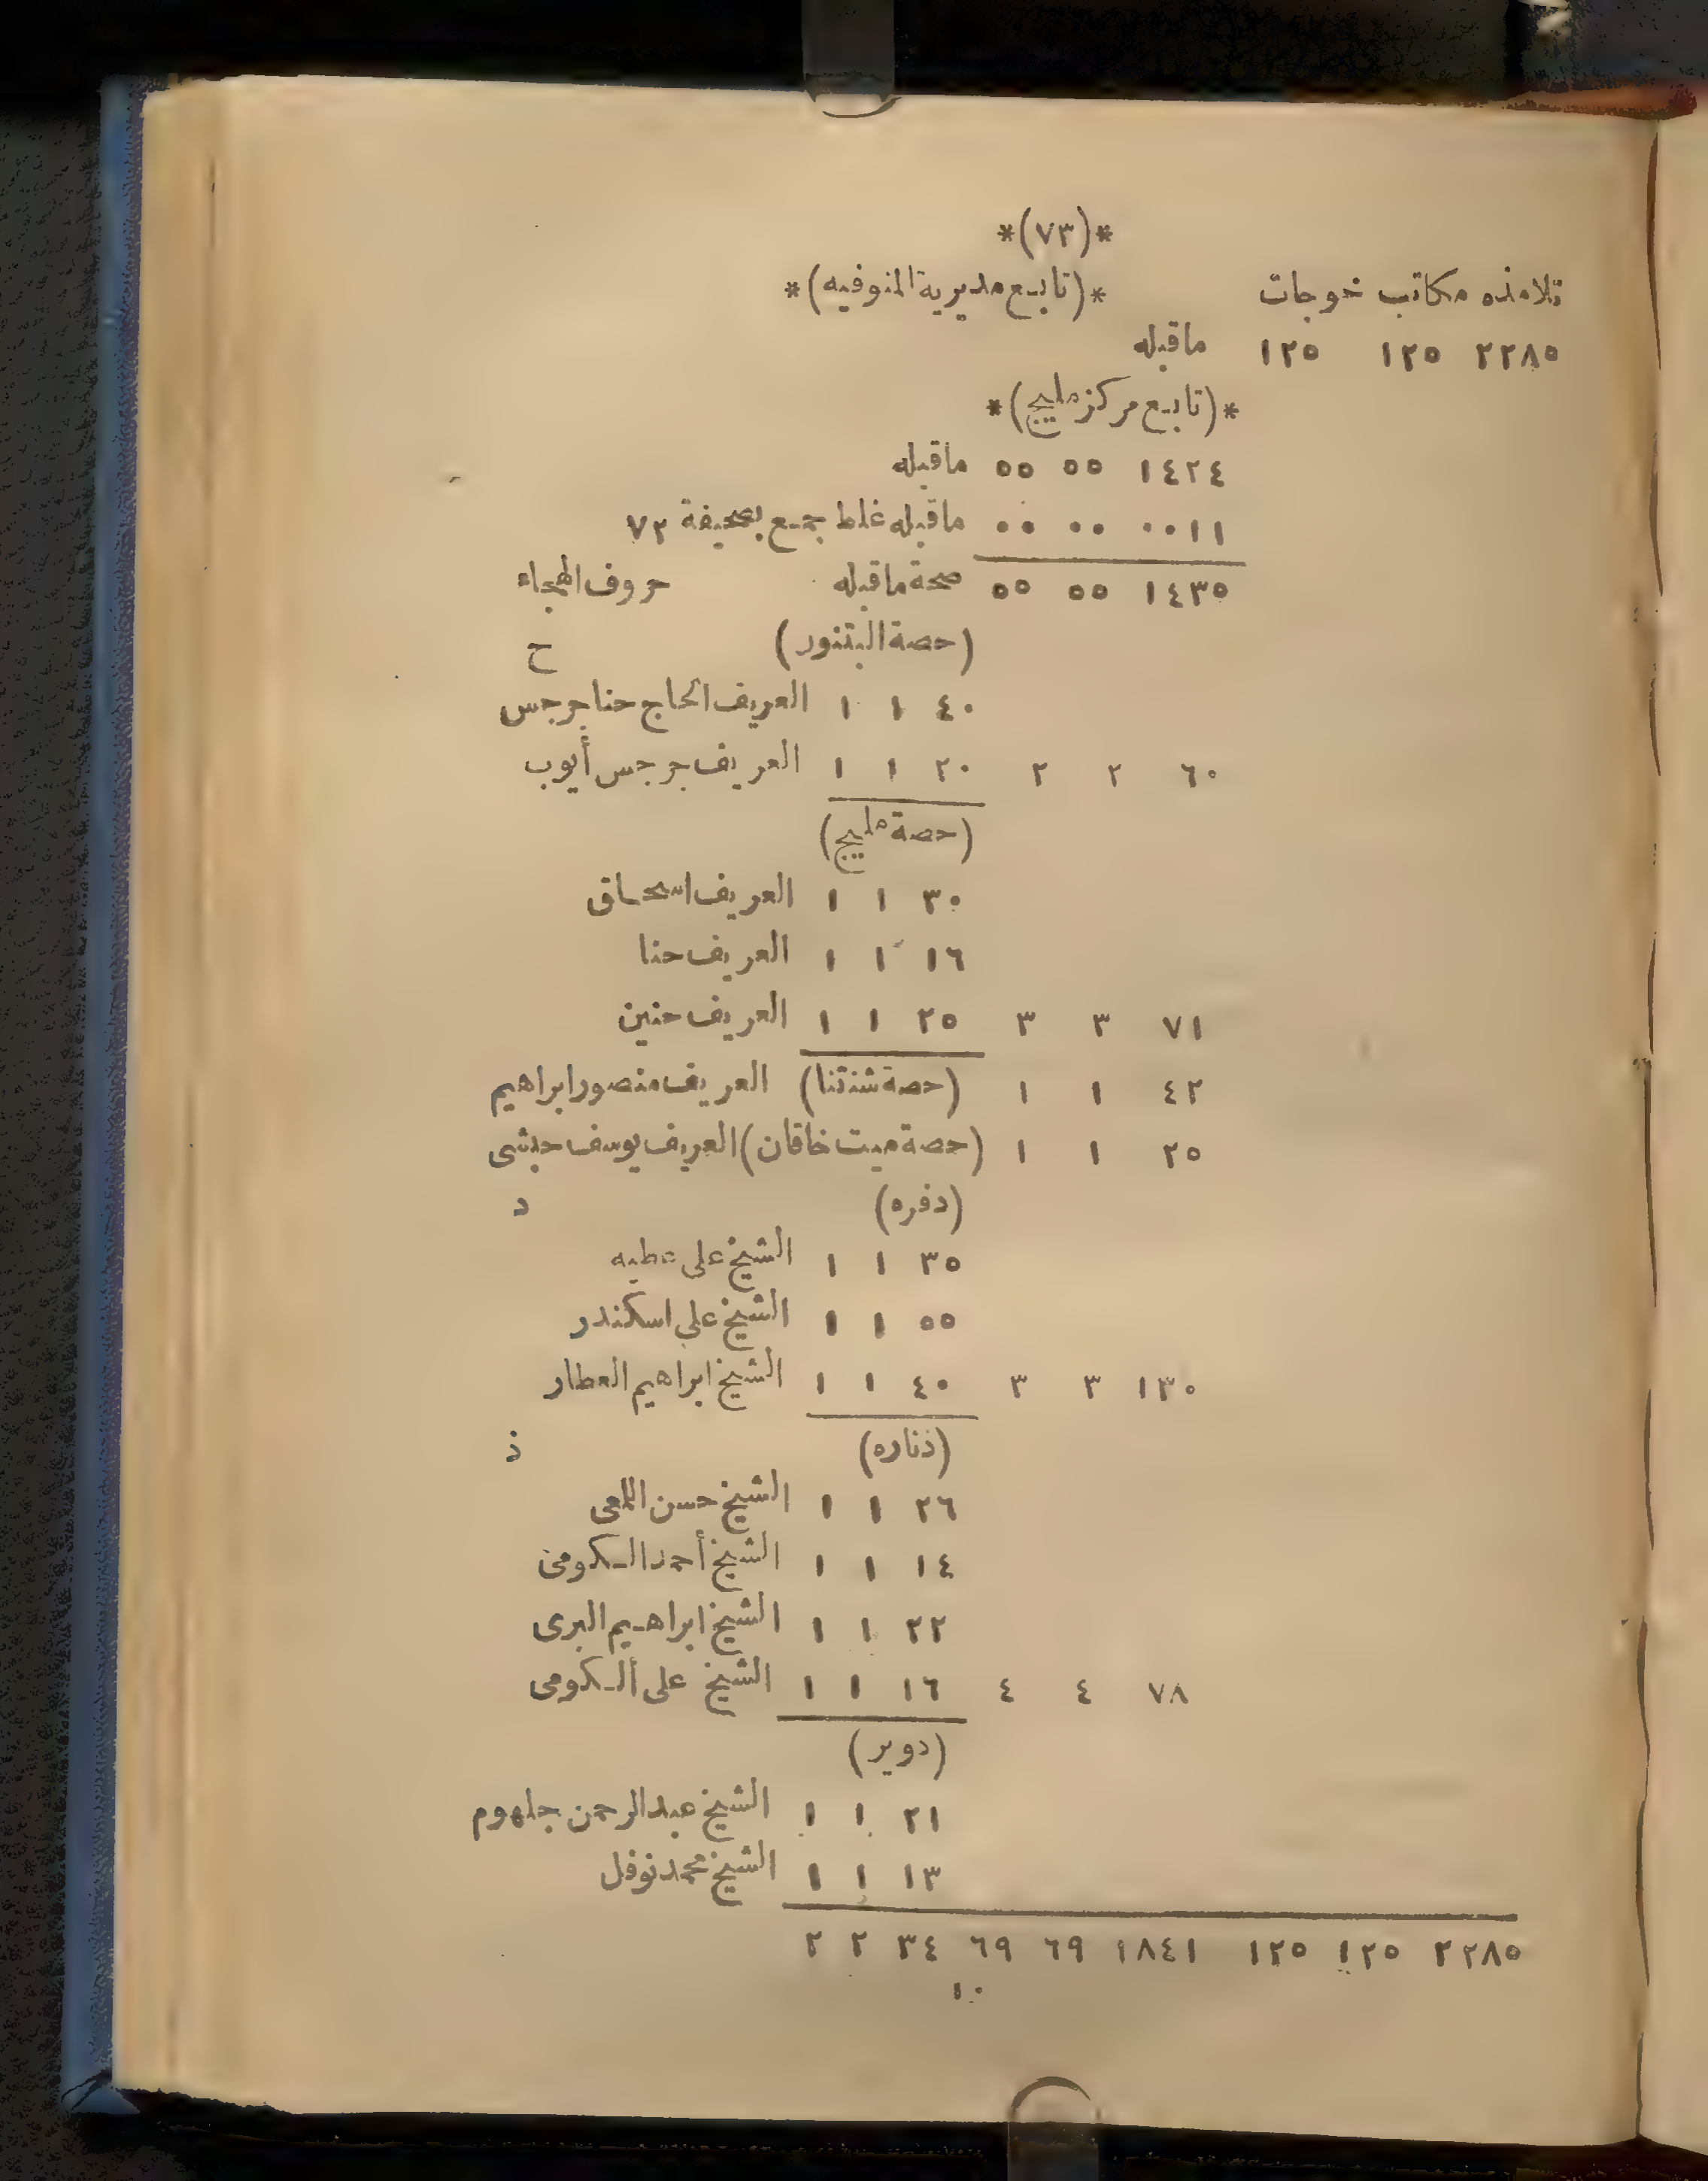 *(٧٣)*
*(تابع مديرية المنوفيه)*
تلامذه مكاتب خوجات
٢٢٨٥ ١٢٥ ١٢٥ ماقبله
*(تابع مركز مليج)*
١٤٢٤ ٥٥ ٥٥ ماقبله
٠٠١١ ٠٠ ٠٠ ماقبله غلط جمع بصحيفة ٧٢
١٤٣٥ ٥٥ ٥٥ صحة ماقبله حروف الهجاء
(حصة البتنور) ح
٤٠ ١ ١ العريف الحاج حنا جرجس
٦٠ ٢ ٢ ٢٠ ١ ١ العريف جرجس أيوب
(حصة مليج)
٣٠ ١ ١ العريف اسحاق
١٦ ١ ١ العريف حنا
٧١ ٣ ٣ ٢٥ ١ ١ العريف حنين
٤٢ ١ ١ (حصة شنتنا) العريف منصور ابراهيم
٢٥ ١ ١ (حصة ميت خاقان) العريف يوسف حبشى
(دفره) د
٣٥ ١ ١ الشيخ على عطيه
٥٥ ١ ١ الشيخ على اسكندر
١٣٠ ٣ ٣ ٤٠ ١ ١ الشيخ ابراهيم العطار
(ذناره) ذ
٢٦ ١ ١ الشيخ حسن اللمعى
١٤ ١ ١ الشيخ أحمد الكومى
٢٢ ١ ١ الشيخ ابراهيم البرى
٧٨ ٤ ٤ ١٦ ١ ١ الشيخ على الكومى
(دوير)
٢١ ١ ١ الشيخ عبدالرحمن جلهوم
١٣ ١ ١ الشيخ محمد نوفل
٢٢٨٥ ١٢٥ ١٢٥ ١٨٤١ ٦٩ ٦٩ ٣٤ ٢ ٢
١٠